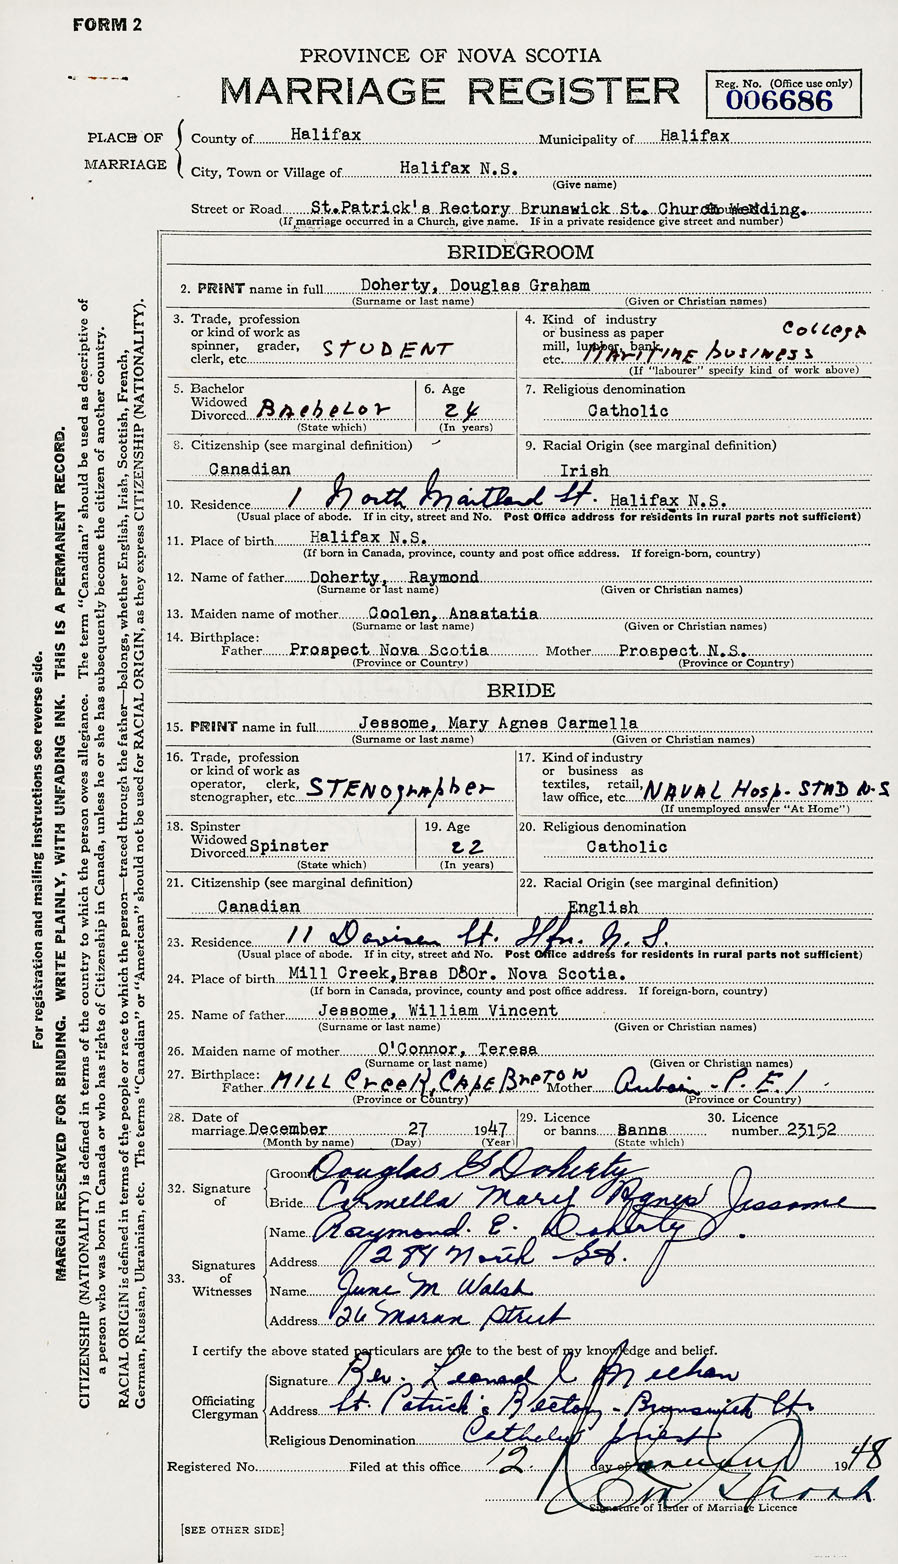 FORM 2
PROVINCE OF NOVA SCOTIA
MARRIAGE REGISTER
Reg. No. (Office use only)
006686
PLACE OF MARRIAGE
County of Halifax Municipality of Halifax
City, Town or Village of Halifax N.S.
(Give name)
Street or Road St.Patrick's Rectory Brunswick St. Church Wedding.
(If marriage occurred in a Church, give name. If in a private residence give street and number)
BRIDEGROOM
2. PRINT name in full Doherty, Douglas Graham
(Surname or last name) (Given or Christian names)
3. Trade, profession or kind of work as spinner, grader, clerk, etc. STUDENT
4. Kind of industry or business as paper mill, lumber, bank, etc. MARITIME business College
(If "labourer" specify kind of work above)
5. Bachelor Widowed Divorced Bachelor
(State which)
6. Age 24
(In years)
7. Religious denomination
Catholic
8. Citizenship (see marginal definition)
Canadian
9. Racial Origin (see marginal definition)
Irish
10. Residence 1 North Maitland St. Halifax N.S.
(Usual place of abode. If in city, street and No. Post Office address for residents in rural parts not sufficient)
11. Place of birth Halifax N.S.
(If born in Canada, province, county and post office address. If foreign-born, country)
12. Name of father Doherty, Raymond
(Surname or last name) (Given or Christian names)
13. Maiden name of mother Coolen, Anastatia
(Surname or last name) (Given or Christian names)
14. Birthplace:
Father Prospect Nova Scotia Mother Prospect N.S.
(Province or Country) (Province or Country)
BRIDE
15. PRINT name in full Jessome, Mary Agnes Carmella
(Surname or last name) (Given or Christian names)
16. Trade, profession or kind of work as operator, clerk, stenographer, etc. STENographer
17. Kind of industry or business as textiles, retail, law office, etc. NAVAL Hosp. STAD N.S
(If unemployed answer "At Home")
18. Spinster Widowed Divorced Spinster
(State which)
19. Age 22
(In years)
20. Religious denomination
Catholic
21. Citizenship (see marginal definition)
Canadian
22. Racial Origin (see marginal definition)
English
23. Residence 11 Davison St. Hfx. N.S.
(Usual place of abode. If in city, street and No. Post Office address for residents in rural parts not sufficient)
24. Place of birth Mill Creek,Bras D'Or. Nova Scotia.
(If born in Canada, province, county and post office address. If foreign-born, country)
25. Name of father Jessome, William Vincent
(Surname or last name) (Given or Christian names)
26. Maiden name of mother O'Connor, Teresa
(Surname or last name) (Given or Christian names)
27. Birthplace:
Father MILL Creek, CAPE BreTON Mother P.E.I.
(Province or Country) (Province or Country)
28. Date of marriage December 27 1947
(Month by name) (Day) (Year)
29. Licence or banns Banns
(State which)
30. Licence number 23152
32. Signature of
Groom Douglas G Doherty
Bride Carmella Mary Agnes Jessome
33. Signatures of Witnesses
Name Raymond. E. Doherty
Address 284 North St.
Name June M Walsh
Address 26 Moran Street
I certify the above stated particulars are true to the best of my knowledge and belief.
Officiating Clergyman
Signature Rev. Leonard Meehan
Address St. Patrick's Rectory - Brunswick St.
Religious Denomination Catholic priest
Registered No. Filed at this office 12 day of January 1948
Signature of Issuer of Marriage Licence
[SEE OTHER SIDE]
For registration and mailing instructions see reverse side.
MARGIN RESERVED FOR BINDING. WRITE PLAINLY, WITH UNFADING INK. THIS IS A PERMANENT RECORD.
CITIZENSHIP (NATIONALITY) is defined in terms of the country to which the person owes allegiance. The term "Canadian" should be used as descriptive of
a person who was born in Canada or who has rights of Citizenship in Canada, unless he or she has subsequently become the citizen of another country.
RACIAL ORIGIN is defined in terms of the people or race to which the person—traced through the father—belongs, whether English, Irish, Scottish, French,
German, Russian, Ukrainian, etc. The terms "Canadian" or "American" should not be used for RACIAL ORIGIN, as they express CITIZENSHIP (NATIONALITY).